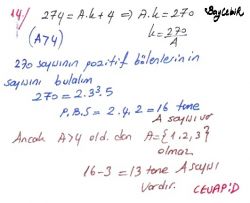 14.) 274 = A.k + 4 ⇒ A.k = 270
(A>4) k = 270/A
270 sayısının pozitif bölenlerinin
sayısını bulalım
270 = 2.3³.5
P.B.S = 2.4.2 = 16 tane
A sayısı var
Ancak A>4 old. dan A = {1.2.3}
olmaz
16-3 = 13 tane A sayısı
vardır.
CEVAP: D